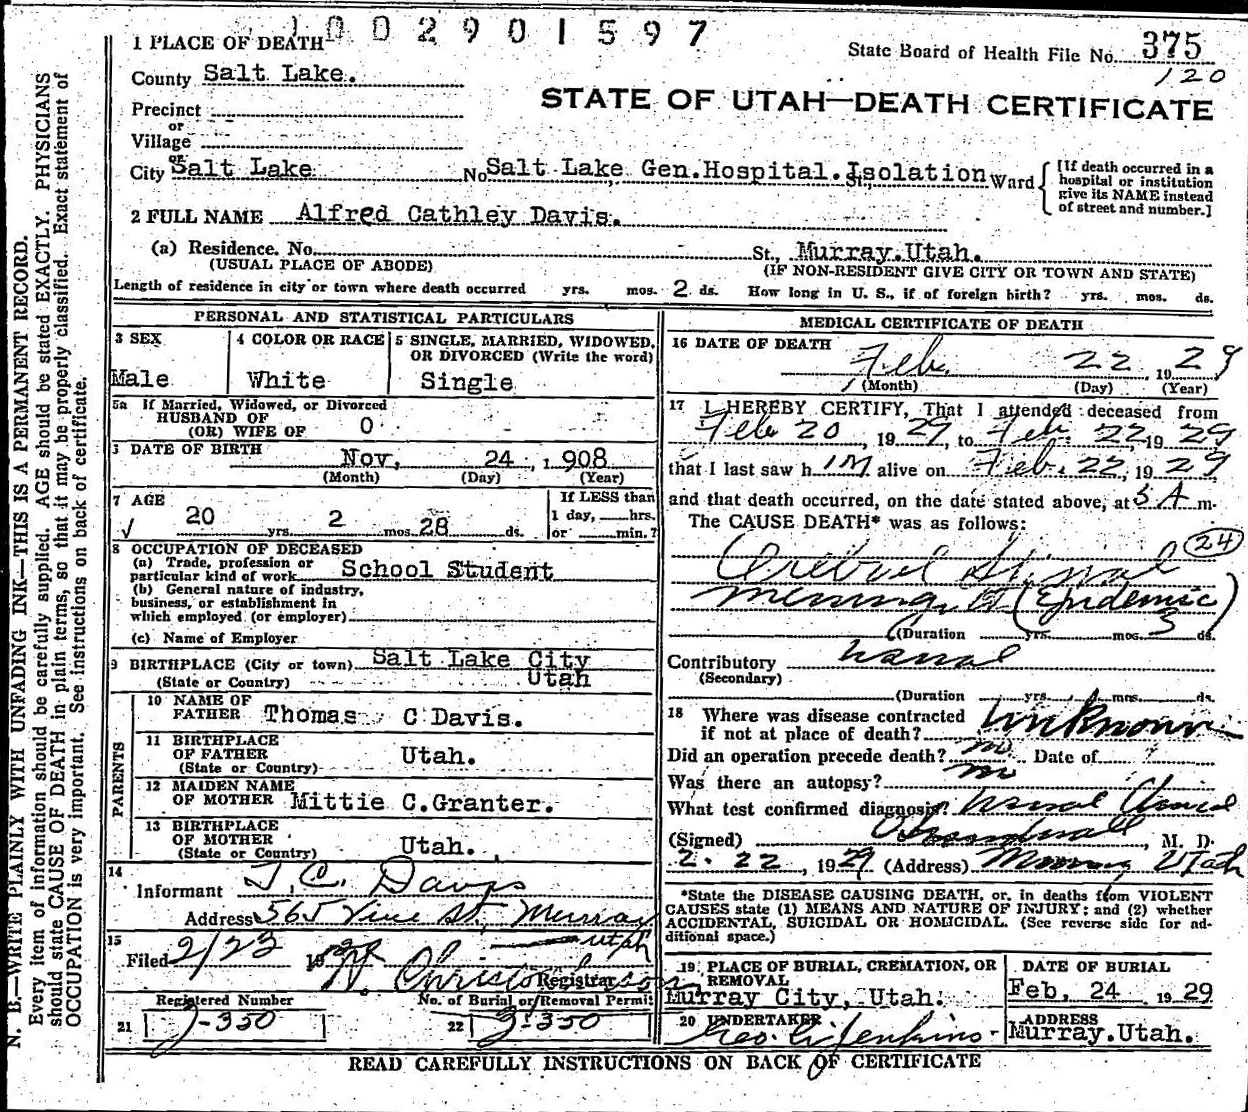 1002901597
1 PLACE OF DEATH
State Board of Health File No. 375
120
County Salt Lake.
STATE OF UTAH—DEATH CERTIFICATE
Precinct
or
Village
or
City Salt Lake No Salt Lake Gen.Hospital. St., Isolation Ward
[If death occurred in a hospital or institution give its NAME instead of street and number.]
2 FULL NAME Alfred Cathley Davis.
(a) Residence. No. St., Murray.Utah.
(USUAL PLACE OF ABODE) (IF NON-RESIDENT GIVE CITY OR TOWN AND STATE)
Length of residence in city or town where death occurred yrs. mos. 2 ds. How long in U. S., if of foreign birth? yrs. mos. ds.
PERSONAL AND STATISTICAL PARTICULARS
3 SEX 4 COLOR OR RACE 5 SINGLE, MARRIED, WIDOWED, OR DIVORCED (Write the word)
Male White Single
5a If Married, Widowed, or Divorced
HUSBAND OF
(OR) WIFE OF 0
DATE OF BIRTH Nov, 24 , 1908
(Month) (Day) (Year)
7 AGE If LESS than
20 yrs. 2 mos. 28 ds. 1 day, hrs.
or min.?
8 OCCUPATION OF DECEASED
(a) Trade, profession or
particular kind of work School Student
(b) General nature of industry,
business, or establishment in
which employed (or employer)
(c) Name of Employer
9 BIRTHPLACE (City or town) Salt Lake City
(State or Country) Utah
PARENTS
10 NAME OF
FATHER Thomas C Davis.
11 BIRTHPLACE
OF FATHER Utah.
(State or Country)
12 MAIDEN NAME
OF MOTHER Mittie C.Granter.
13 BIRTHPLACE
OF MOTHER Utah.
(State or Country)
14
Informant T. C. Davis
Address 565 Vine St. Murray
Utah
15
Filed 2/23 19 Registrar
Registered Number No. of Burial or Removal Permit
21 2-350 22 2-350
MEDICAL CERTIFICATE OF DEATH
16 DATE OF DEATH
Feb. 22, 1929
(Month) (Day) (Year)
17 I HEREBY CERTIFY, That I attended deceased from
Feb 20, 1929, to Feb. 22 1929
that I last saw h im alive on Feb. 22, 1929
and that death occurred, on the date stated above, at 5 A m.
The CAUSE DEATH* was as follows:
24
Cerebral Spinal
Meningitis (Epidemic)
(Duration yrs. mos. 3 ds.
Contributory
(Secondary)
(Duration yrs. mos. ds.
18 Where was disease contracted
if not at place of death? Unknown
Did an operation precede death? no Date of ?
Was there an autopsy? no
What test confirmed diagnosis? Clinical
(Signed) , M. D.
2-22, 1929 (Address) Murray Utah
*State the DISEASE CAUSING DEATH, or, in deaths from VIOLENT
CAUSES state (1) MEANS AND NATURE OF INJURY; and (2) whether
ACCIDENTAL, SUICIDAL OR HOMICIDAL. (See reverse side for ad-
ditional space.)
19 PLACE OF BURIAL, CREMATION, OR REMOVAL DATE OF BURIAL
Murray City, Utah. Feb, 24 1929
20 UNDERTAKER ADDRESS
Jenkins Murray.Utah.
READ CAREFULLY INSTRUCTIONS ON BACK OF CERTIFICATE
N. B.—WRITE PLAINLY WITH UNFADING INK—THIS IS A PERMANENT RECORD.
Every item of information should be carefully supplied. AGE should be stated EXACTLY. PHYSICIANS
should state CAUSE OF DEATH in plain terms, so that it may be properly classified. Exact statement of
OCCUPATION is very important. See instructions on back of certificate.